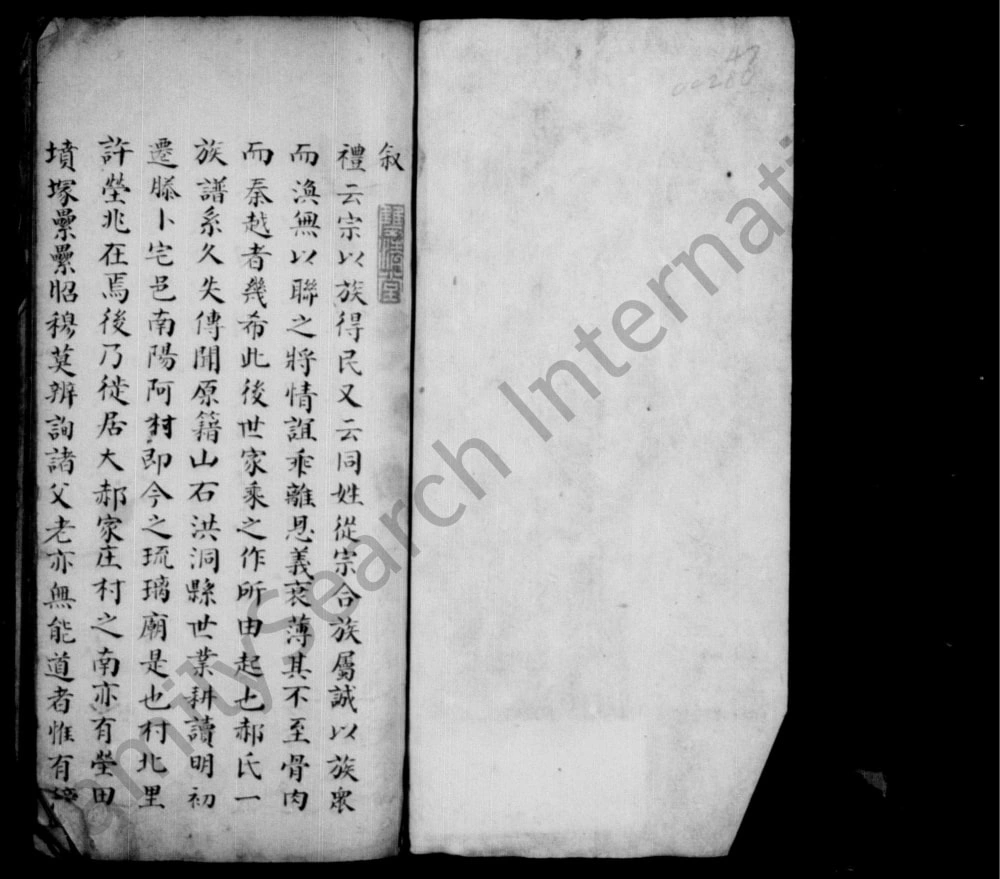 叙
禮云宗以族得民又云同姓從宗合族屬誠以族眾
而渙無以聯之將情誼乖離恩義衰薄其不至骨肉
而秦越者幾希此後世家乘之作所由起也郝氏一
族譜系久失傳聞原籍山石洪洞縣世業耕讀明初
遷滕卜宅邑南陽阿村即今之琉璃廟是也村北里
許塋兆在焉後乃徙居大郝家庄村之南亦有塋田
墳塚纍纍昭穆莫辨詢諸父老亦無能道者惟有
47
00280
FamilySearch Internati